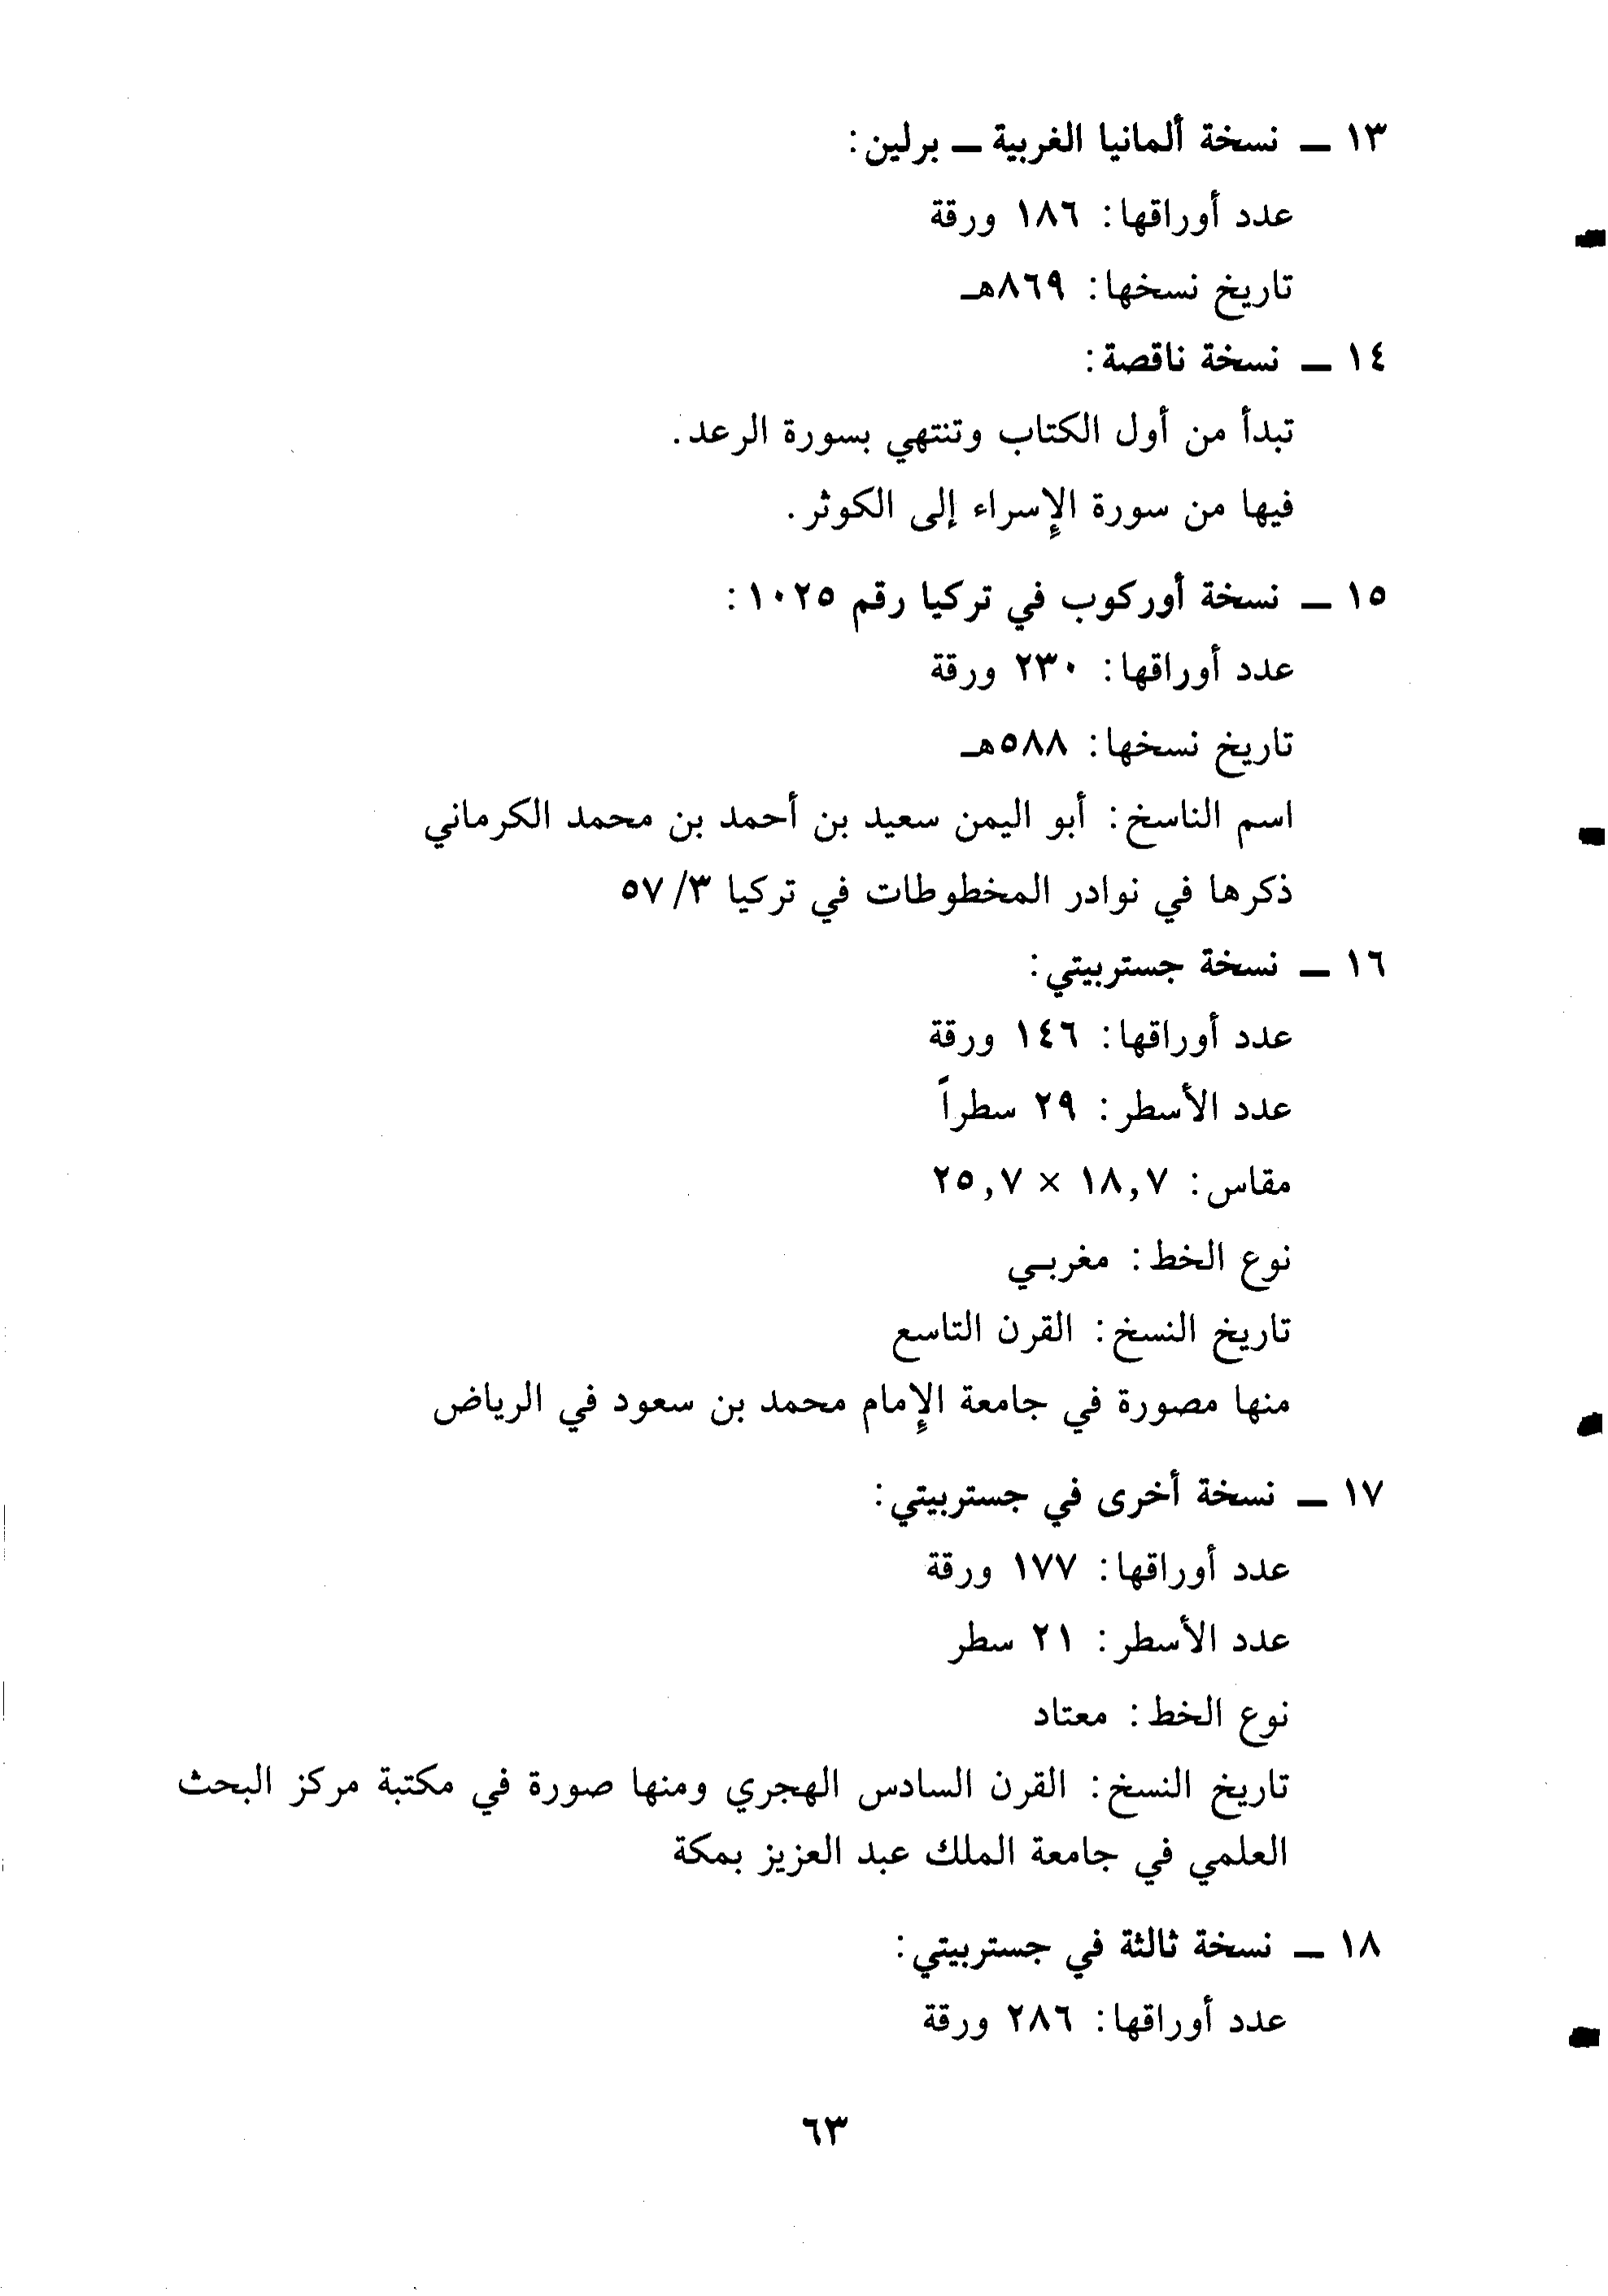 ١٣ ــ نسخة ألمانيا الغربية ــ برلين:
عدد أوراقها: ١٨٦ ورقة
تاريخ نسخها: ٨٦٩هـ
١٤ ــ نسخة ناقصة:
تبدأ من أول الكتاب وتنتهي بسورة الرعد.
فيها من سورة الإسراء إلى الكوثر.
١٥ ــ نسخة أوركوب في تركيا رقم ١٠٢٥:
عدد أوراقها: ٢٣٠ ورقة
تاريخ نسخها: ٥٨٨هـ
اسم الناسخ: أبو اليمن سعيد بن أحمد بن محمد الكرماني
ذكرها في نوادر المخطوطات في تركيا ٣/ ٥٧
١٦ ــ نسخة جستربيتي:
عدد أوراقها: ١٤٦ ورقة
عدد الأسطر: ٢٩ سطراً
مقاس: ١٨,٧ × ٢٥,٧
نوع الخط: مغربـي
تاريخ النسخ: القرن التاسع
منها مصورة في جامعة الإمام محمد بن سعود في الرياض
١٧ ــ نسخة أخرى في جستربيتي:
عدد أوراقها: ١٧٧ ورقة
عدد الأسطر: ٢١ سطر
نوع الخط: معتاد
تاريخ النسخ: القرن السادس الهجري ومنها صورة في مكتبة مركز البحث
العلمي في جامعة الملك عبد العزيز بمكة
١٨ ــ نسخة ثالثة في جستربيتي:
عدد أوراقها: ٢٨٦ ورقة
٦٣